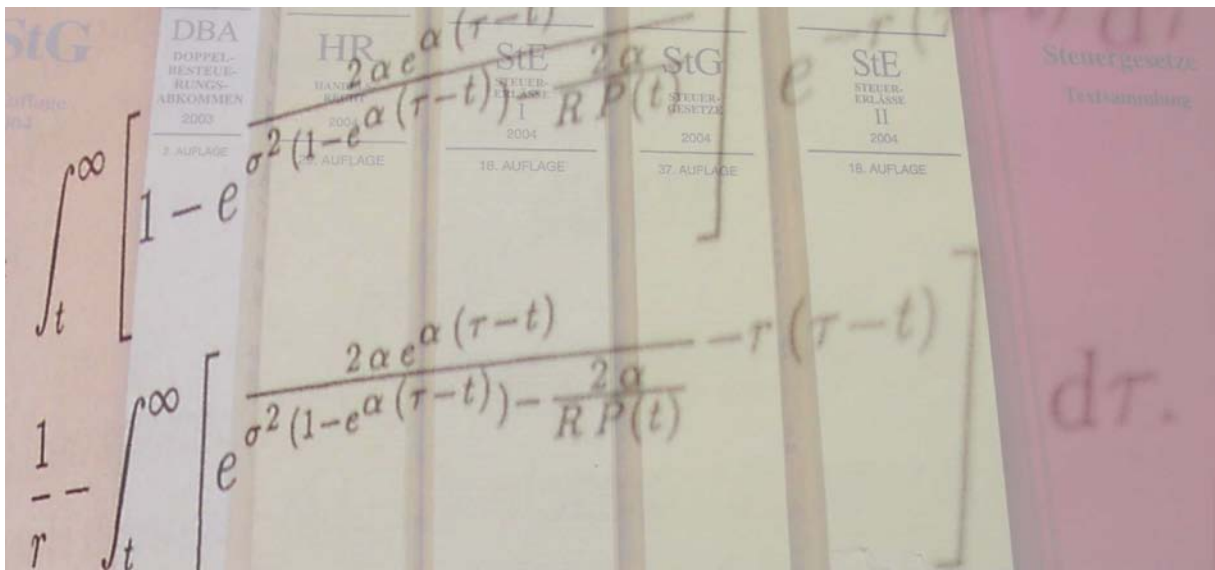 StG
DBA
DOPPEL-
BESTEUE-
RUNGS-
ABKOMMEN
2003
2. AUFLAGE
HR
HANDELS-
RECHT
2004
AUFLAGE
StE
STEUER-
ERLÄSSE
I
2004
18. AUFLAGE
StG
STEUER-
GESETZE
2004
37. AUFLAGE
StE
STEUER-
ERLÄSSE
II
2004
18. AUFLAGE
Steuergesetze
Textsammlung
∫_t^∞ [1 − e^{\frac{2 α e^{α (τ−t)}}{σ^2 (1−e^{α (τ−t)}) − \frac{2 α}{R P(t)}}}] e^{−r (τ−t)} dτ
\frac{1}{r} − ∫_t^∞ [e^{\frac{2 α e^{α (τ−t)}}{σ^2 (1−e^{α (τ−t)}) − \frac{2 α}{R P(t)}} − r (τ−t)}] dτ.